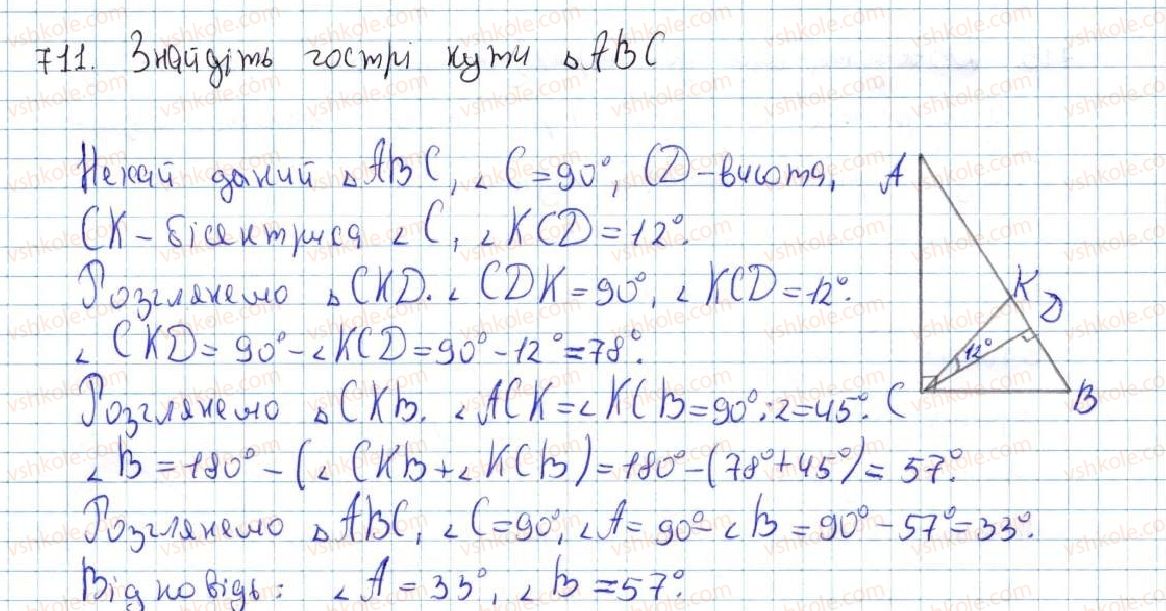 711. Знайдіть гострі кути △ABC
Нехай даний △ABC, ∠C=90°, CD-висота,
CK-бісектриса ∠C, ∠KCD=12°.
Розглянемо △CKD. ∠CDK=90°, ∠KCD=12°.
∠CKD=90°-∠KCD=90°-12°=78°.
Розглянемо △CKB. ∠ACK=∠KCB=90°:2=45°.
∠B=180°-(∠CKB+∠KCB)=180°-(78°+45°)=57°.
Розглянемо △ABC, ∠C=90°, ∠A=90°-∠B=90°-57°=33°.
Відповідь: ∠A=33°, ∠B=57°.
A
K
D
12°
C
B
vshkole.com